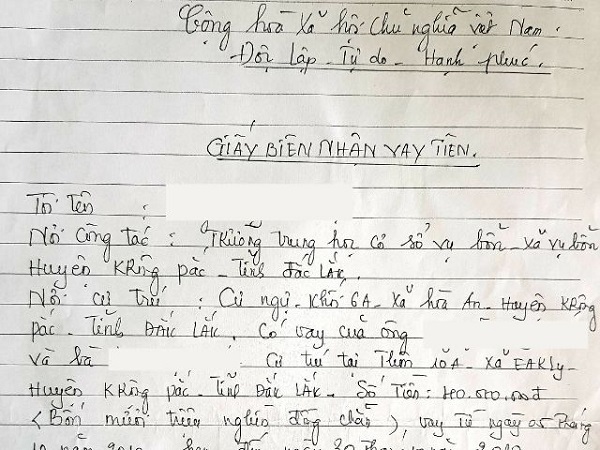 Cộng hoà xã hội chủ nghĩa việt Nam.
Độc Lập - Tự do - Hạnh phúc.
GIẤY BIÊN NHẬN VAY TIỀN.
Tôi Tên :
Nơi công tác : Trường trung học cơ sở vụ bổn - xã vụ bổn
Huyện KRông pắc - Tỉnh ĐắC LắK.
Nơi cư trú : Cư ngụ - Khối 6A - xã hòa An - Huyện KRông
pắc - Tỉnh ĐẮK LẮK. Có vay của ông
và bà Cư trú tại Thôn 10A - xã EAKly -
Huyện KRông pắc - Tỉnh ĐắK LắK - Số Tiền : 400.000.000đ
(Bốn mươi triệu nghìn đồng chẵn), vay Từ ngày 05 Tháng
năm đến ngày 30 Tháng